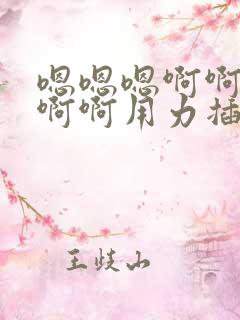 嗯嗯嗯啊啊
啊啊用力插
王歧山